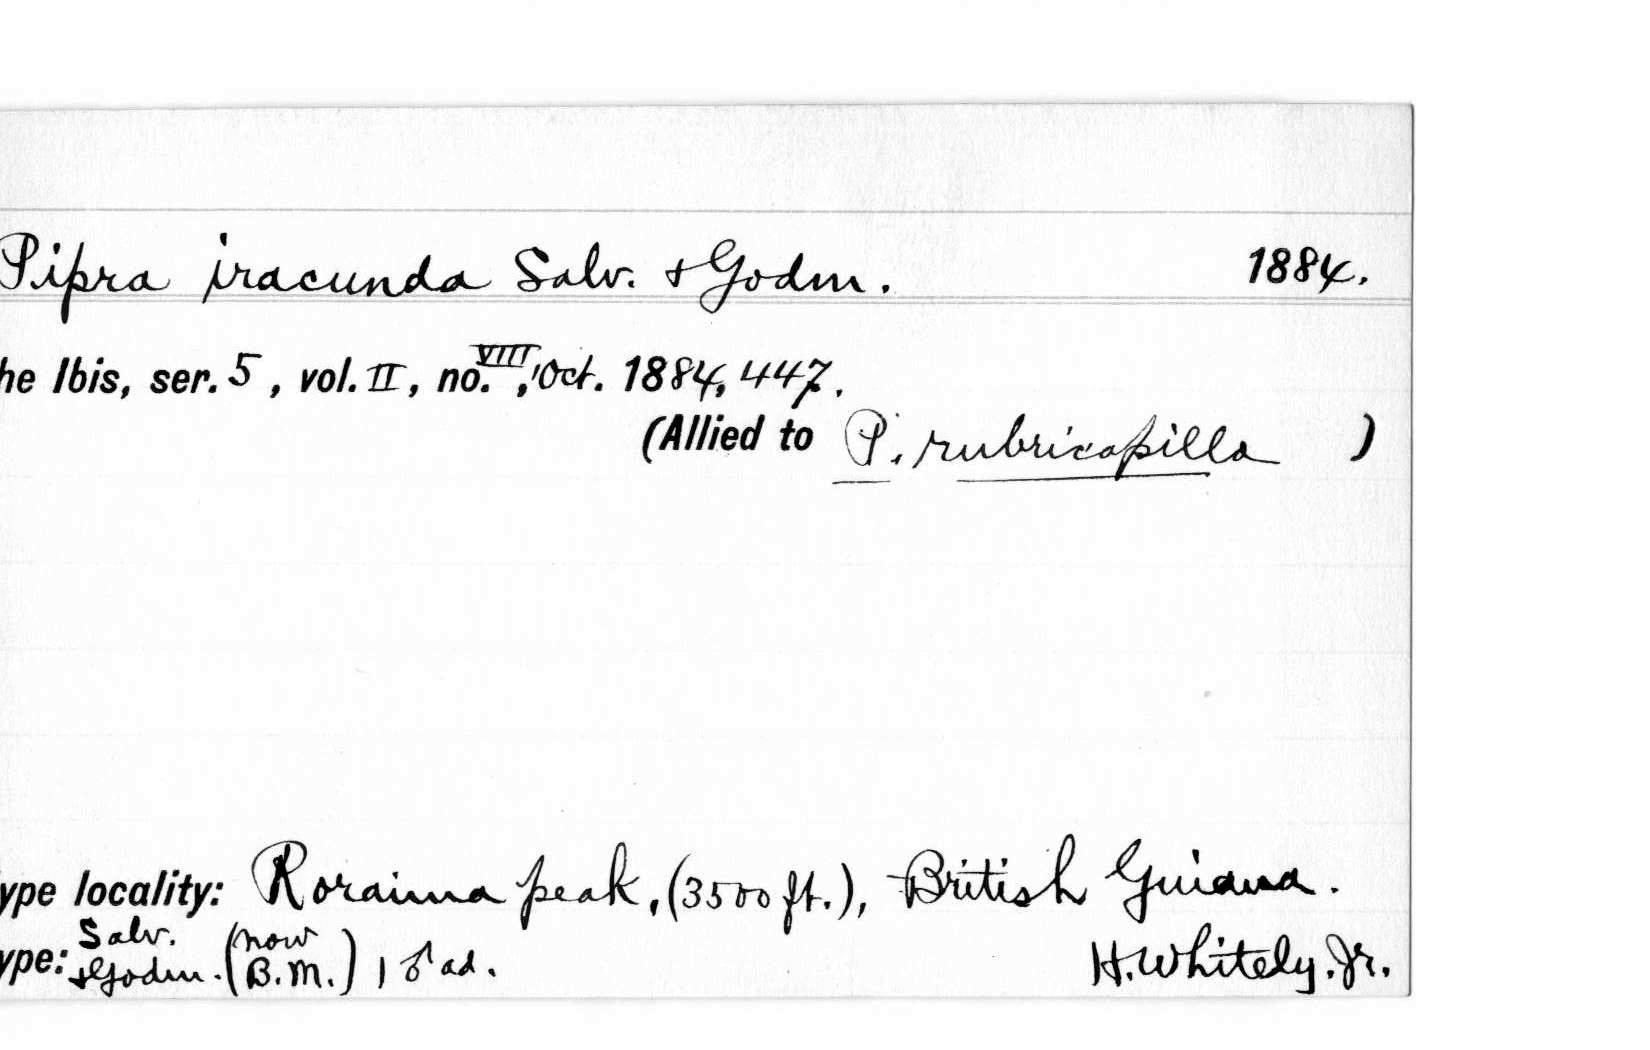 Pipra iracunda Salv. & Godm. 1884.
he Ibis, ser. 5, vol. II, no. VIII, Oct. 1884, 447.
(Allied to P. rubricapilla )
ype locality: Roraima peak, (3500 ft.), British Guiana.
ype: Salv. & Godm. (now B.M.) 1 ♂ ad. H. Whitely. Jr.